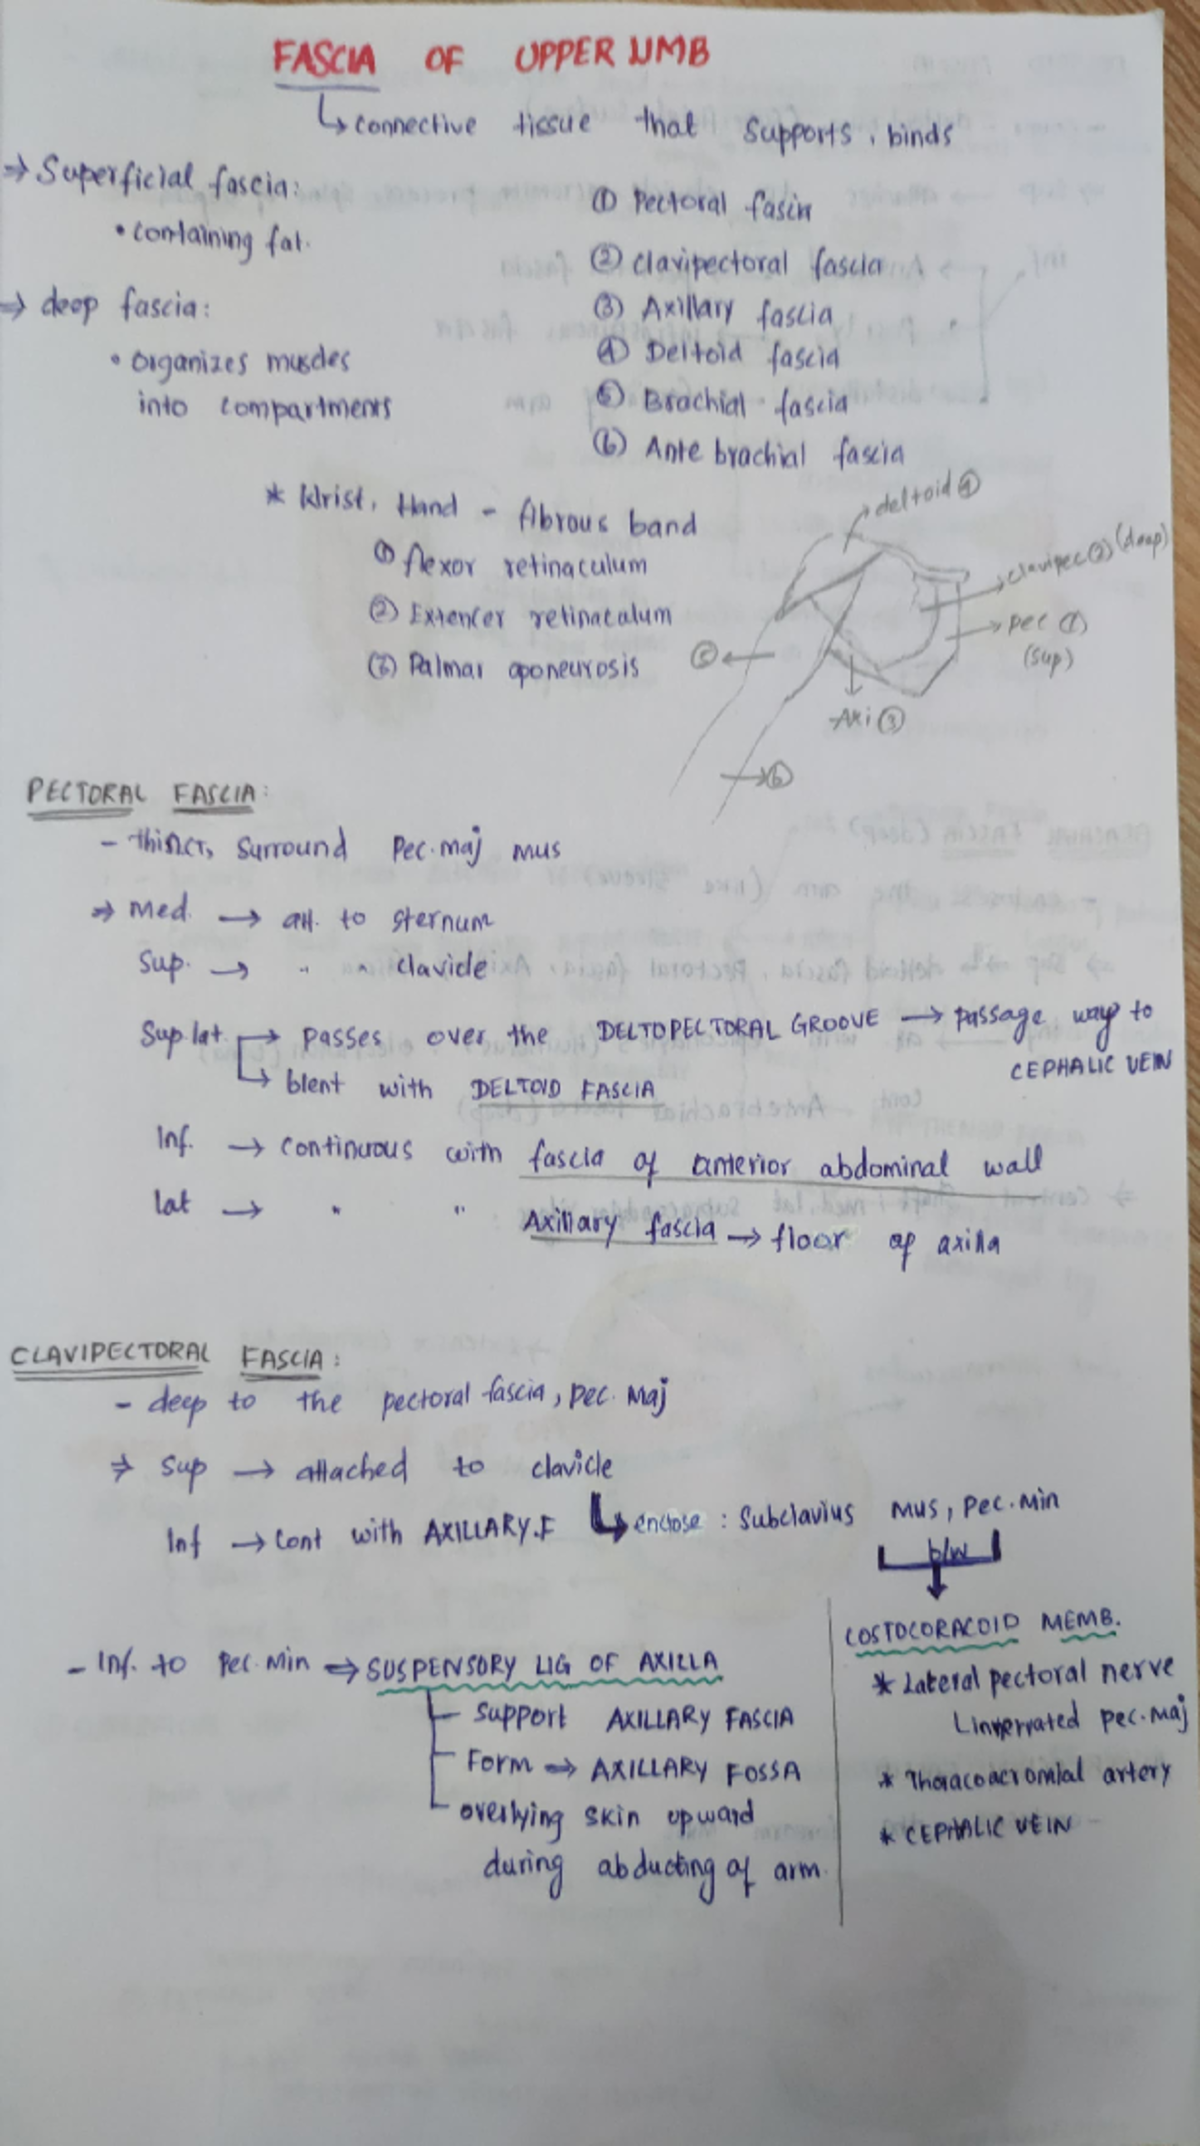 FASCIA OF UPPER LIMB
↳ connective tissue that supports, binds
⇒ Superficial fascia:
• containing fat.
⇒ deep fascia:
• organizes muscles
into compartments
① Pectoral fascia
② clavipectoral fascia
③ Axillary fascia
④ Deltoid fascia
⑤ Brachial fascia
⑥ Ante brachial fascia
* Wrist, Hand - fibrous band
① flexor retinaculum
② Extencer retinaculum
③ Palmar aponeurosis
deltoid ④
clavipec ② (deep)
pec ①
(sup)
⑤
Axi ③
⑥
PECTORAL FASCIA:
- surround Pec.maj mus
⇒ Med. → att. to sternum
Sup. → " " clavicle
Sup.lat. → passes over the DELTOPECTORAL GROOVE → passage way to
CEPHALIC VEIN
↳ blent with DELTOID FASCIA
Inf. → continuous with fascia of anterior abdominal wall
lat → " " Axillary fascia → floor of axilla
CLAVIPECTORAL FASCIA:
- deep to the pectoral fascia, pec. Maj
⇒ Sup → attached to clavicle
↳ enclose : Subclavius mus, pec.min
Inf → cont with AXILLARY.F
b/w
COSTOCORACOID MEMB.
* Lateral pectoral nerve
pec.maj
* Thoracoacromial artery
* CEPHALIC VEIN
- Inf. to Pec.min ⇒ SUSPENSORY LIG OF AXILLA
support AXILLARY FASCIA
Form ⇒ AXILLARY FOSSA
overlying skin upward
during abducting of arm.